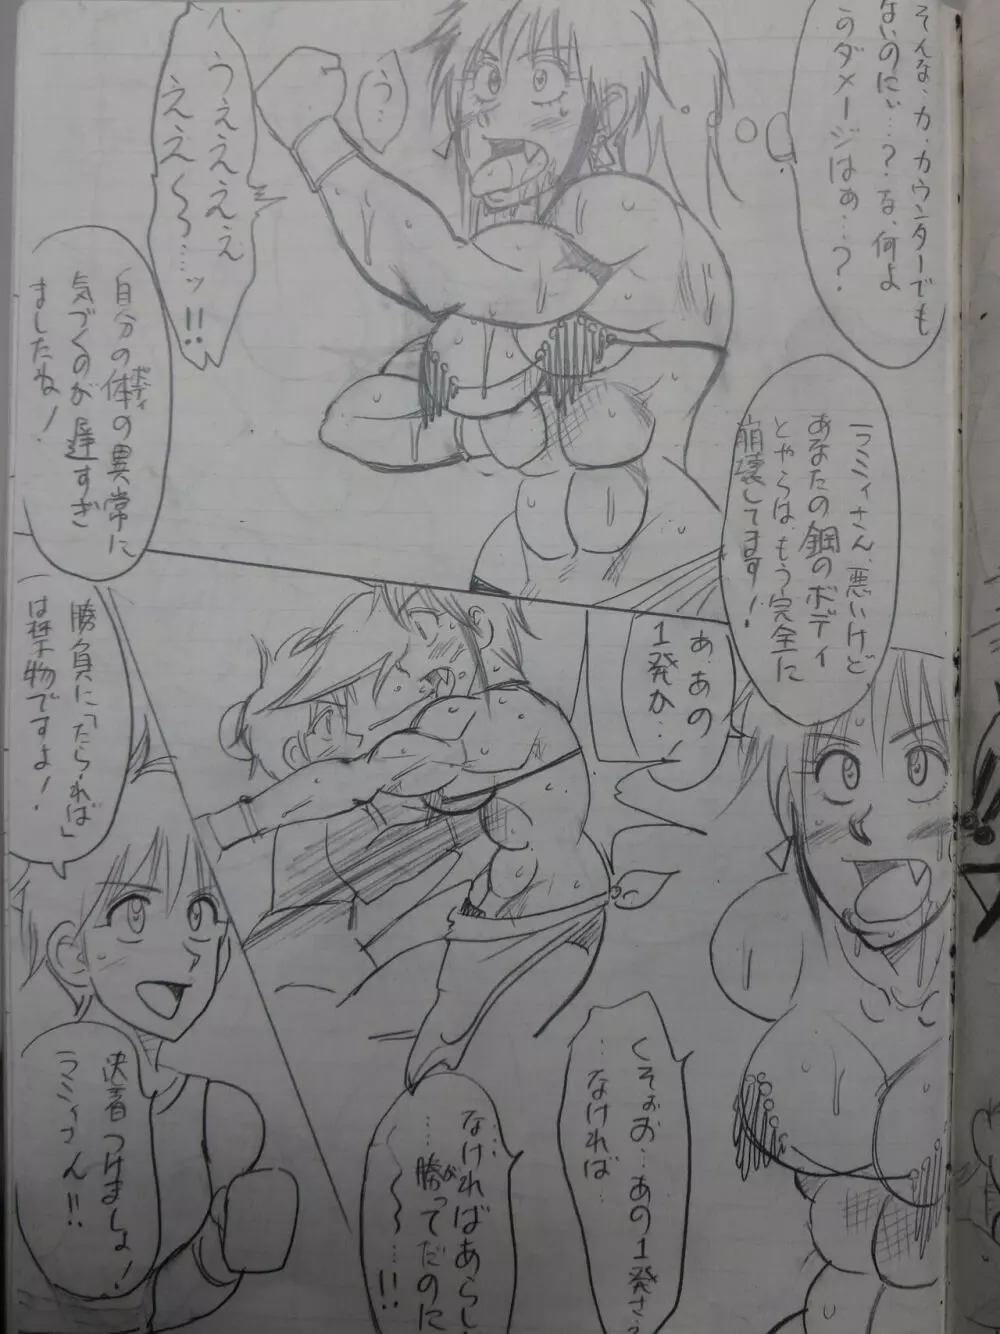 そんな、カ、カウンターでも
ないのにぃ…？な、何よ
このダメージはぁ…？
う…
うええええぇ
ええぇ〜〜…ッ!!
自分の体の異常に
ボディ
気づくのが遅すぎ
ましたね！
ラミィさん、悪いけど
あなたの鋼のボディ
とやらは、もう完全に
崩壊してます！
あ、あの
1発か…！
勝負に「たら・れば」
は禁物ですよ！
くそぉお…あの1発さえ
…なければ…
なければあらし
…勝ってだのに
が
〜〜…!!
決着つけましょ！
ラミィさん!!